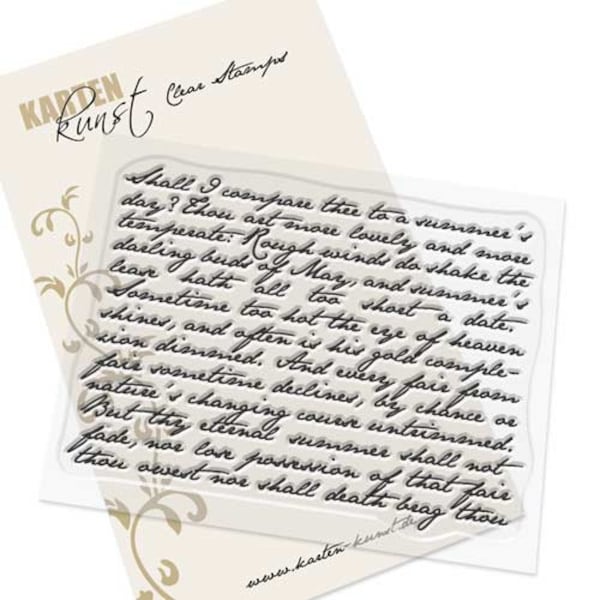 KARTEN
Kunst
Clear Stamps
Shall I compare thee to a summer's
day? Thou art more lovely and more
temperate: Rough winds do shake the
darling buds of May, and summer's
lease hath all too short a date.
Sometime too hot the eye of heaven
shines, and often is his gold comple-
xion dimmed. And every fair from
fair sometime declines, by chance or
nature's changing course untrimmed.
But thy eternal summer shall not
fade, nor lose possession of that fair
thou owest nor shall death brag thou
www.karten-kunst.de